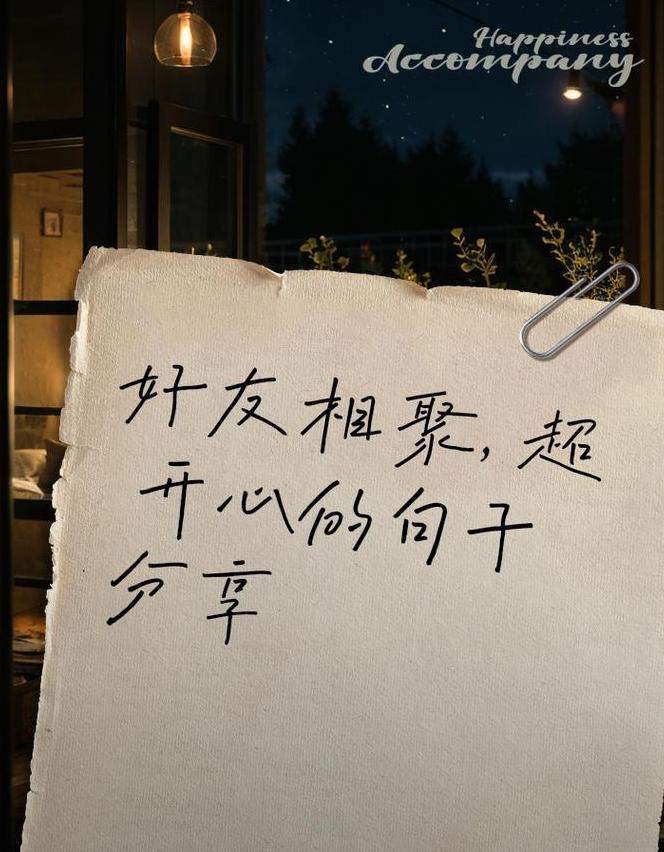 Happiness
Accompany
好友相聚，超
开心的句子
分享